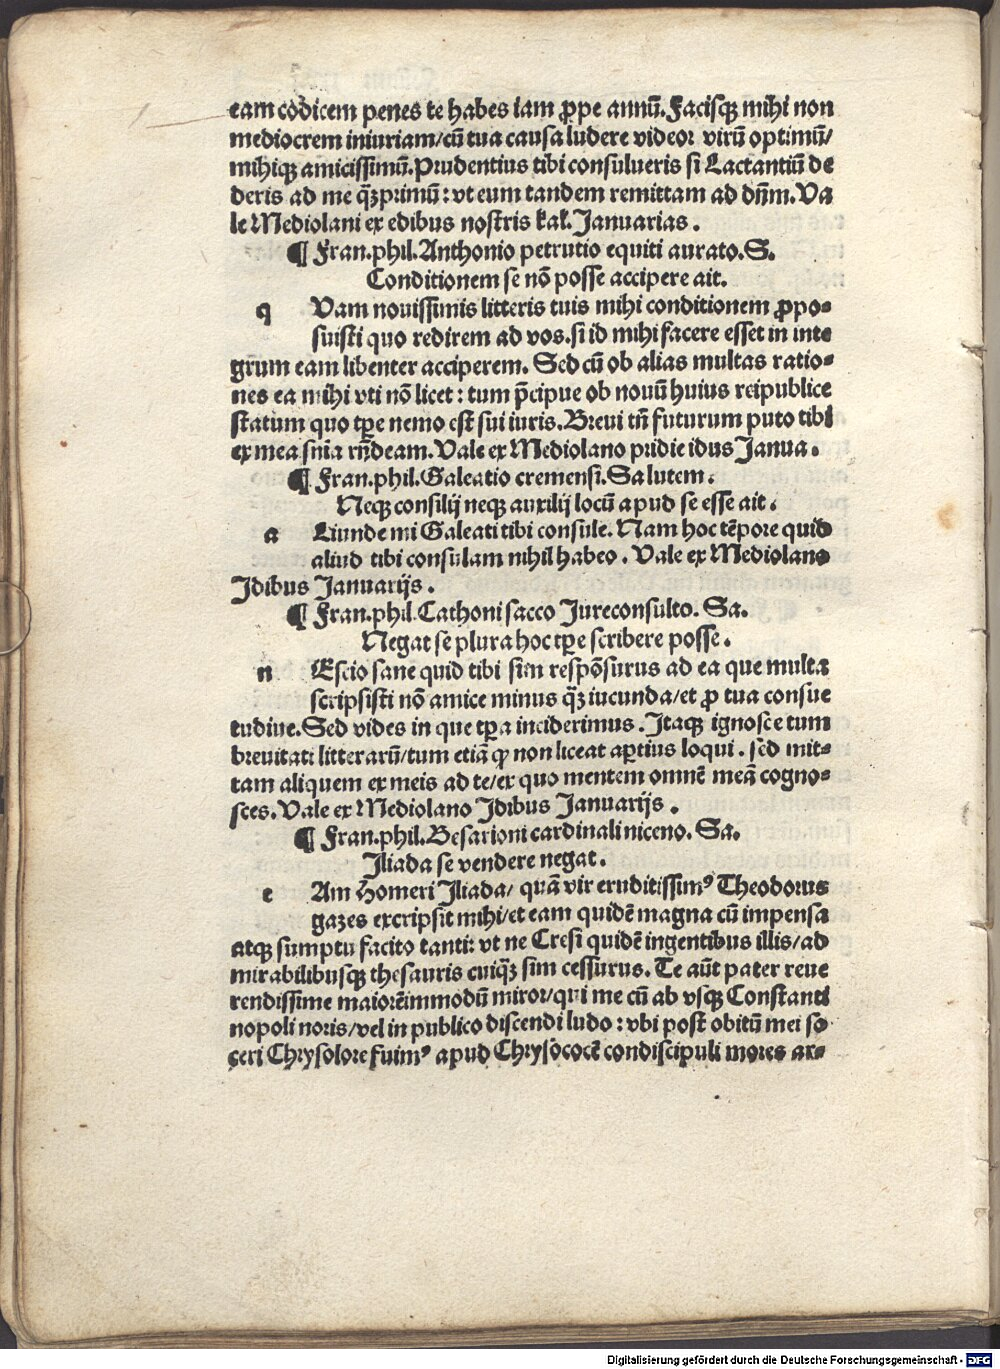 eam codicem penes te habes iam ꝓpe annũ. Facisqꝫ mihi non
mediocrem iniuriam/cũ tua causa ludere videor virũ optimũ/
mihiqꝫ amicissimũ. Prudentius tibi consulueris si Lactantiũ de
deris ad me qͣꝫprimũ: vt eum tandem remittam ad dñm. Va
le Mediolani ex edibus nostris kal. Januarias.
¶ Fran. phil. Anthonio petrutio equiti aurato. S.
Conditionem se nõ posse accipere ait.
q Uam nouissimis litteris tuis mihi conditionem ꝓpo-
suisti quo redirem ad vos. si id mihi facere esset in inte
grum eam libenter acciperem. Sed cũ ob alias multas ratio-
nes ea mihi vti nõ licet: tum p̃cipue ob nouũ huius reipublice
statum quo tꝑe nemo est sui iuris. Breui tñ futurum puto tibi
ex mea sñia rñdeam. Vale ex Mediolano pridie idus Janua.
¶ Fran. phil. Galeatio cremensi. Salutem.
Neqꝫ consilij neqꝫ auxilij locũ apud se esse ait.
a Liunde mi Galeati tibi consule. Nam hoc tẽpore quid
aliud tibi consulam nihil habeo. Vale ex Mediolano
Jdibus Januarijs.
¶ Fran. phil. Cathoni sacco Jureconsulto. Sa.
Negat se plura hoc tꝑe scribere posse.
n Escio sane quid tibi sim respõsurus ad ea que multa
scripsisti nõ amice minus qͣꝫ iucunda/et ꝓ tua consue
tudine. Sed vides in que tꝑa inciderimus. Jtaqꝫ ignosce tum
breuitati litterarũ/tum etiã ꝙ non liceat aꝑtius loqui. sed mit-
tam aliquem ex meis ad te/ex quo mentem omnẽ meã cogno-
sces. Vale ex Mediolano Jdibus Januarijs.
¶ Fran. phil. Besarioni cardinali niceno. Sa.
Jliada se vendere negat.
e Am Homeri Jliada/ quã vir eruditissimꝰ Theodorus
gazes excripsit mihi/et eam quidẽ magna cũ impensa
atqꝫ sumptu facito tanti: vt ne Cresi quidẽ ingentibus illis/ad
mirabilibusqꝫ thesauris cuiqͣꝫ sim cessurus. Te aũt pater reue
rendissime maiorẽimmodũ miror/qui me cũ ab vsqꝫ Constanti
nopoli noris/vel in publico discendi ludo: vbi post obitũ mei so
ceri Chrysolore fuimꝰ apud Chrysococẽ condiscipuli mores ar-
Digitalisierung gefördert durch die Deutsche Forschungsgemeinschaft - DFG